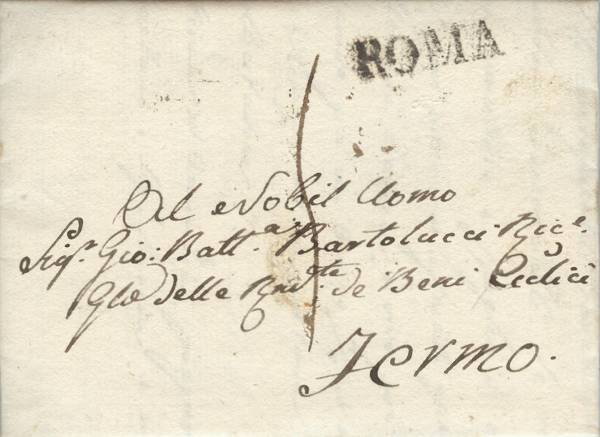 ROMA
Al Nobil Uomo
Sig.r Gio: Batt.a Bartolucci Ric.e
Gle delle de Beni
Fermo.